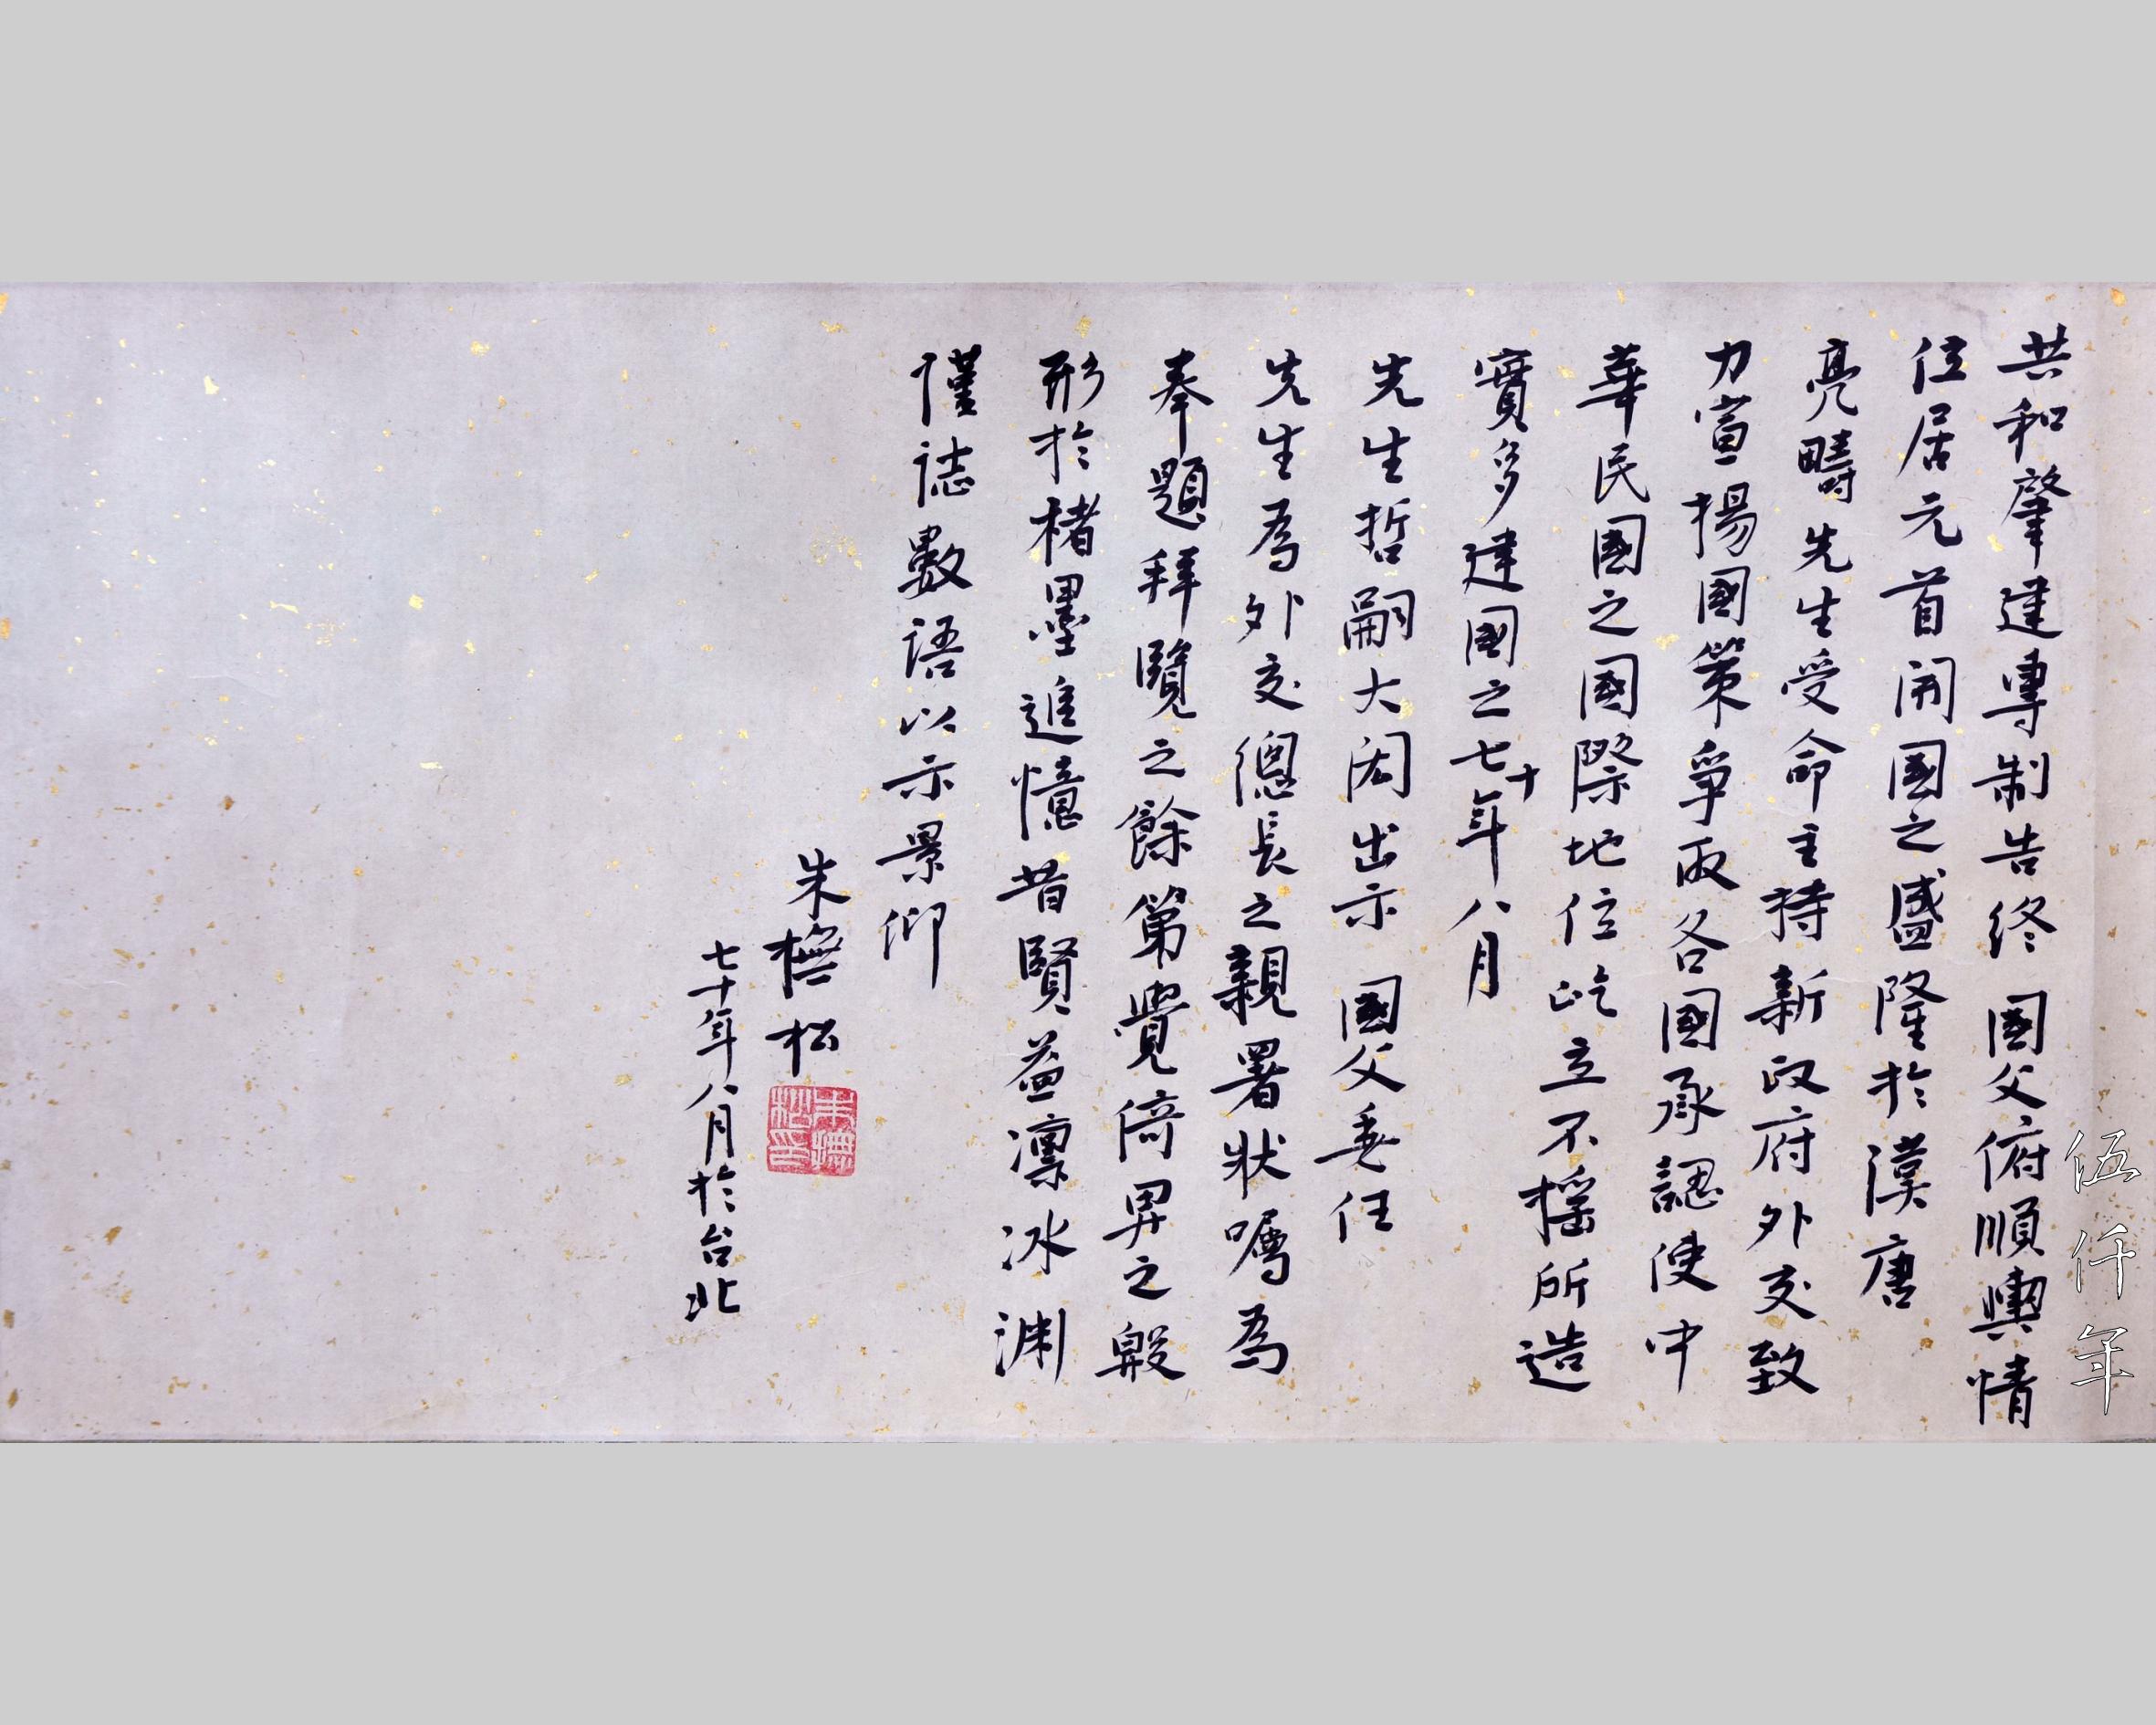 共和肇建專制告終 國父俯順輿情
位居元首開國之盛隆於漢唐
亮疇先生受命主持新政府外交致
力宣揚國策爭取各國承認使中
華民國之國際地位屹立不搖所造
實多建國之七十年八月
先生哲嗣大閎出示 國父委任
先生為外交總長之親署狀囑為
奉題拜覽之餘第覺倚畀之殷
形於楮墨追憶昔賢益凜冰淵
謹誌數語以示景仰
朱撫松
七十年八月於台北
朱撫松印
伍仟年